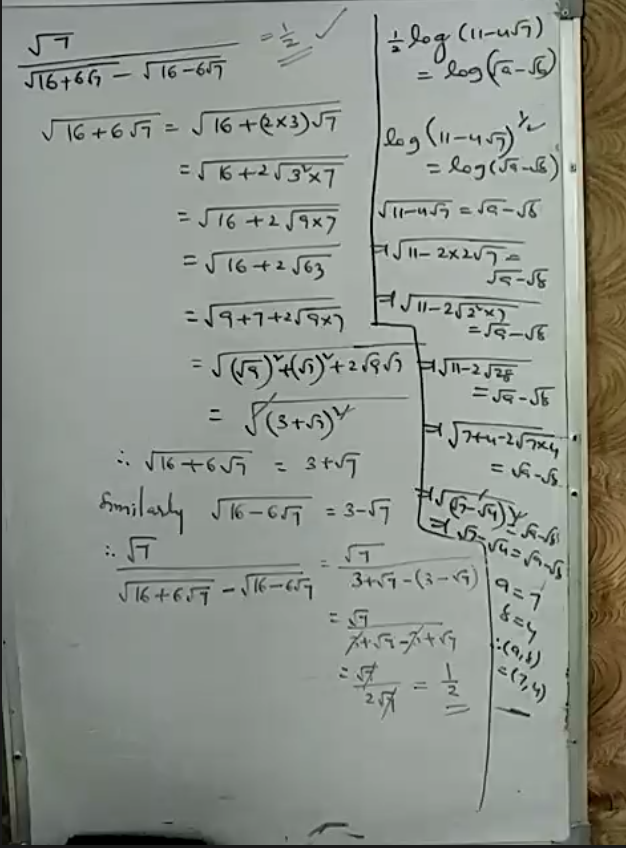 √7 / (√(16+6√7) − √(16−6√7)) = 1/2 ✓
√(16+6√7) = √(16+(2×3)√7)
= √(16+2√(3²×7))
= √(16+2√(9×7))
= √(16+2√63)
= √(9+7+2√(9×7))
= √((√9)²+(√7)²+2√9√7)
= √((3+√7)²)
∴ √(16+6√7) = 3+√7
Similarly √(16−6√7) = 3−√7
∴ √7 / (√(16+6√7) − √(16−6√7)) = √7 / (3+√7−(3−√7))
= √7 / (3+√7−3+√7)
= √7 / 2√7 = 1/2
1/2 log (11−4√7)
= log(√a−√b)
log (11−4√7)^1/2
= log(√a−√b)
√(11−4√7) = √a−√b
⇒ √(11−2×2√7) =
√a−√b
⇒ √(11−2√(2²×7))
= √a−√b
⇒ √(11−2√28)
= √a−√b
⇒ √(7+4−2√(7×4))
= √a−√b
⇒ √((√7−√4)²) = √a−√b
⇒ √7−√4 = √a−√b
a = 7
b = 4
∴ (a,b)
= (7,4)